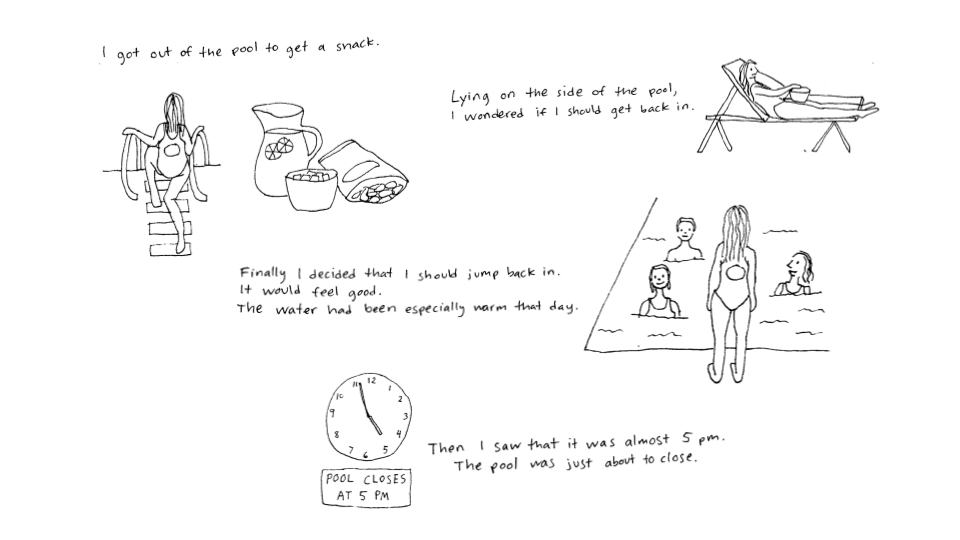 I got out of the pool to get a snack.
Lying on the side of the pool,
I wondered if I should get back in.
Finally I decided that I should jump back in.
It would feel good.
The water had been especially warm that day.
12
11
1
10
2
9
3
8
4
7
5
6
POOL CLOSES
AT 5 PM
Then I saw that it was almost 5 pm.
The pool was just about to close.